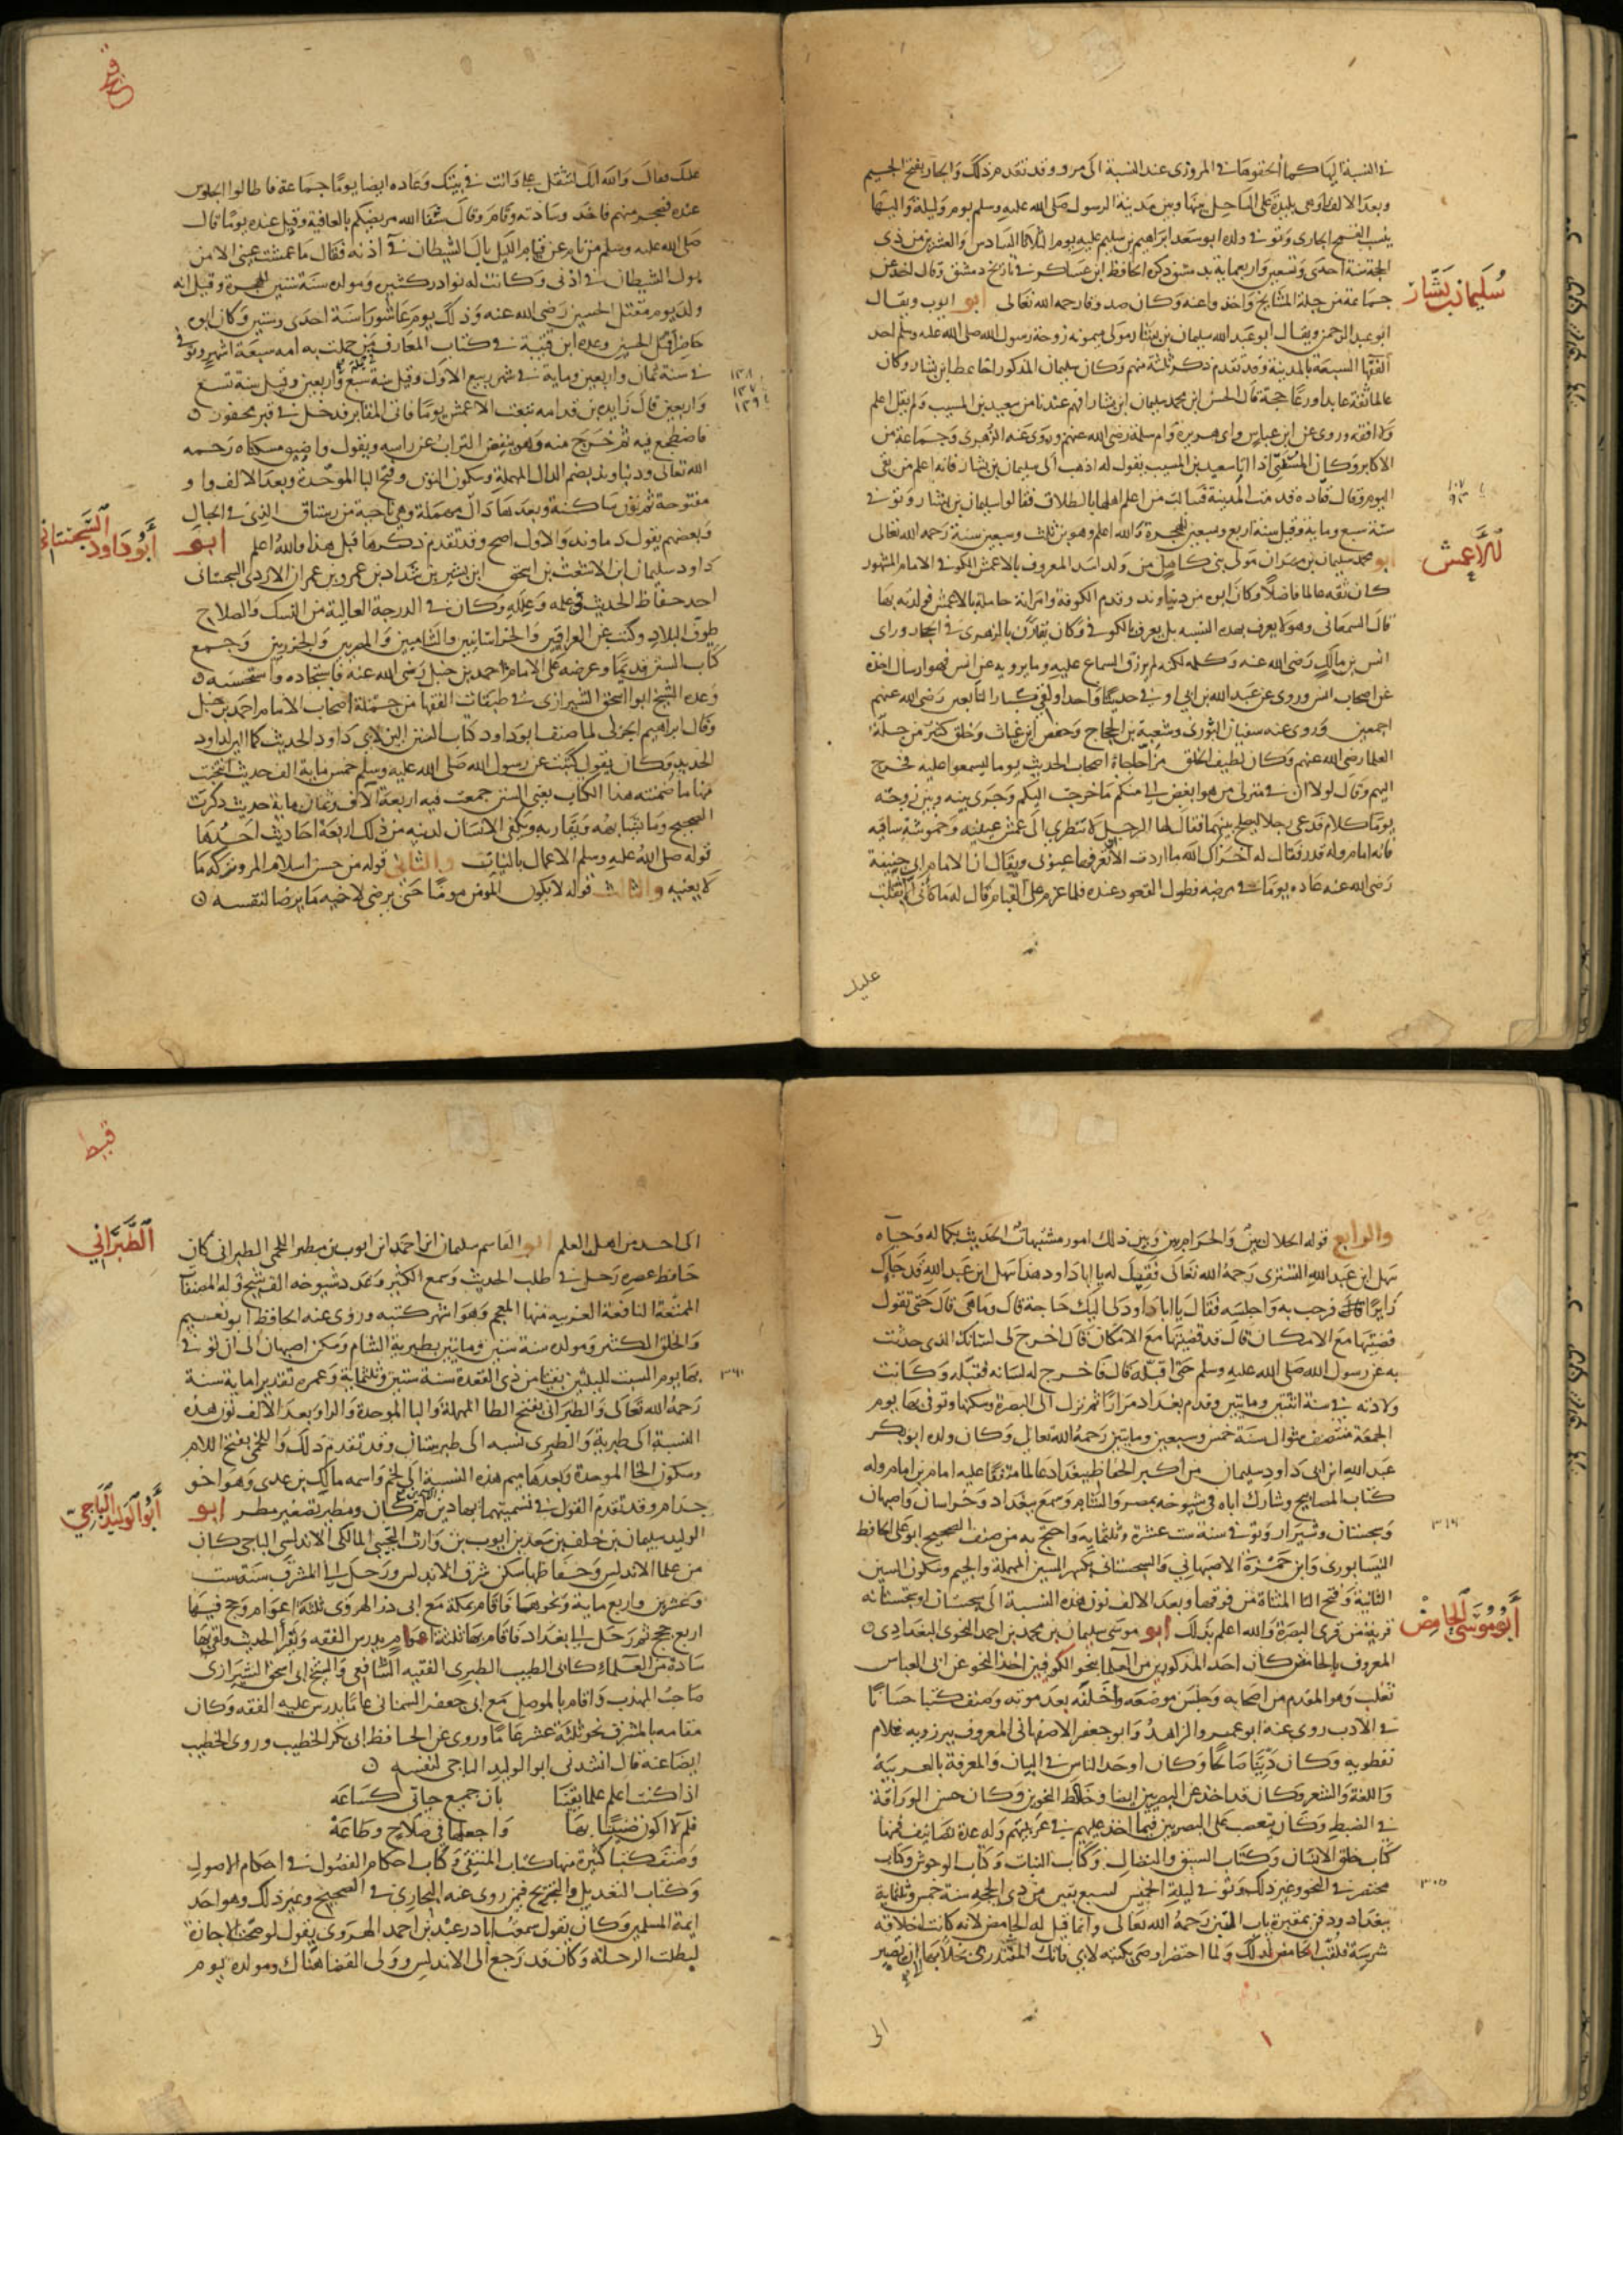 في النسبة اليها كما ألحقوها في المروزي عند النسبة الى مرو وقد تقدم ذكر ذلك والجار بفتح الجيم
وبعد الالف راء وهي بليدة على الساحل بينها وبين مدينة الرسول صلى الله عليه وسلم يوم وليلة واليها
ينسب القمح الجاري وتوفي ولده ابو سعد ابراهيم بن سليم عليه يوم الثلاثا السادس والعشرين من ذي
الحجة سنة احدى وتسعين واربعماية بدمشق ذكره الحافظ ابن عساكر في تاريخ دمشق وقال اخذ عن
جماعة من جلة المشايخ واخذ واعنه وكان صدوقا رحمه الله تعالى ابو ايوب ويقال
سليمان بن يسار
ابو عبد الرحمن ويقال ابو عبد الله سليمان بن يسار مولى ميمونه زوجة رسول الله صلى الله عليه وسلم احد
الفقها السبعة بالمدينة وقد تقدم ذكر ثلثة منهم وكان سليمان المذكور اخا عطا بن يسار وكان
عالما ثقة عابدا ورعا حجة قال الحسن ابن محمد سليمان ابن يسار افهم عندنا من سعيد بن المسيب ولم يقل اعلم
ولا افقه وروى عن ابن عباس وابي هريرة وام سلمة رضي الله عنهم وروى عنه الزهري وجماعة من
الاكابر وكان المستفتي اذا اتا سعيد بن المسيب يقول له اذهب الى سليمان بن يسار فانه اعلم من بقي
اليوم وقال قتاده قدمت المدينة فسالت من اعلم اهلها بالطلاق فقالوا سليمان بن يسار وتوفي
١٠٧
٩٤
سنة سبع وماية وقيل سنة اربع وتسعين للهجرة والله اعلم وهو بن ثلث وسبعين سنة رحمه الله تعالى
ابو محمد سليمان بن مهران مولى بني كاهل من ولد اسد المعروف بالاعمش الكوفي الامام المشهور
الأعمش
كان ثقه عالما فاضلا وكان ابوه من دنباوند وقدم الكوفة وامراته حاملة بالاعمش فولدته بها
قال السمعاني وهو لا يعرف بهذه النسبه بل يعرف بالكوفي وكان يقارن بالزهري في الحجاز وراى
انس بن مالك رضي الله عنه وكلمه لكنه لم يرزق السماع عليه وما يرويه عن انس فهو ارسال اخذه
عن اصحاب انس وروى عن عبد الله بن ابي اوفى حديثا واحدا ولقي كبار التابعين رضي الله عنهم
اجمعين وروى عنه سفيان الثوري وشعبة بن الحجاج وحفص ابن غياث وخلق كثير من جلة
العلما رضي الله عنهم وكان لطيف الخلق مزاحا جاءه اصحاب الحديث يوما ليسمعوا عليه فخرج
اليهم وقال لولا ان في منزلي من هو ابغض الي منكم ما خرجت اليكم وجرى بينه وبين زوجته
يوما كلام فدعى رجلا ليصلح بينهما فقال لها الرجل لا تنظري الى عمش عينيه وحموشة ساقيه
فانه امام وله قدر فقال له اخزاك الله ما اردت الا ان تعرفها عيوبي ويقال ان الامام ابي حنيفة
رضي الله عنه عاده يوما في مرضه فطول القعود عنده فلما عزم على القيام قال له ما كأني الا ثقلت
عليك
عليك فقال والله انك لتثقل علي وانت في بيتك وعاده ايضا يوما جماعة فاطالوا الجلوس
عنده فضجر منهم فاخذ وسادته وقام وقال شفا الله مريضكم بالعافية وقيل عنده يوما قال
صلى الله عليه وسلم من نام عن قيام الليل بال الشيطان في اذنه فقال ما عمشت عيني الا من
بول الشيطان في اذني وكانت له نوادر كثيره ومولده سنة ستين للهجرة وقيل انه
ولد يوم مقتل الحسين رضي الله عنه وذلك يوم عاشورا سنة احدى وستين وكان ابوه
حاضرا قتل الحسين وعده ابن قتيبة في كتاب المعارف فيمن حملت به امه سبعة اشهر وتوفي
في سنة ثمان واربعين وماية في شهر ربيع الاول وقيل سنة سبع واربعين وقيل سنة تسع
١٤٨
١٤٧
١٤٩
واربعين قال زايده بن قدامه تبعت الاعمش يوما فاتى المقابر فدخل في قبر محفور
فاضطجع فيه ثم خرج منه وهو ينفض التراب عن راسه ويقول واضيق مسكناه رحمه
الله تعالى ودنباوند بضم الدال المهملة وسكون النون وفتح البا الموحدة وبعد الالف واو
مفتوحة ثم نون ساكنة وبعدها دال مهملة وهي ناحية من رستاق الري في الجبال
وبعضهم يقول دماوند والاول اصح وقد تقدم ذكرها قبل هذا والله اعلم ابو
أبو داود السجستاني
داود سليمان ابن الاشعث بن اسحق ابن بشير بن شداد بن عمرو بن عمران الازدي السجستاني
احد حفاظ الحديث وعلمه وعلله وكان في الدرجة العالية من النسك والصلاح
طوف البلاد وكتب عن العراقيين والخراسانيين والشاميين والمصريين والجزريين وجمع
كتاب السنن قديما وعرضه على الامام احمد بن حنبل رضي الله عنه فاستجاده واستحسنه
وعده الشيخ ابو اسحق الشيرازي في طبقات الفقها من جملة اصحاب الامام احمد بن حنبل
وقال ابراهيم الحربي لما صنف ابو داود كتاب السنن الين لابي داود الحديث كما الين لداود
الحديد وكان يقول كتبت عن رسول الله صلى الله عليه وسلم خمس ماية الف حديث انتخبت
منها ما ضمنته هذا الكتاب يعني السنن جمعت فيه اربعة الاف وثمان ماية حديث ذكرت
الصحيح وما يشابهه ويقاربه ويكفي الانسان لدينه من ذلك اربعة احاديث احدها
قوله صلى الله عليه وسلم الاعمال بالنيات والثاني قوله من حسن اسلام المرء تركه ما
لا يعنيه والثالث قوله لا يكون المومن مومنا حتى يرضى لاخيه ما يرضا لنفسه
والرابع قوله الحلال بين والحرام بين وبين ذلك امور مشتبهات الحديث بكماله وجاءه
سهل ابن عبد الله التستري رحمه الله تعالى فقيل له يا ابا داود هذا سهل ابن عبد الله قد جاك
زايرا قال فرحب به واجلسه فقال يا ابا داود لي اليك حاجة قال وما هي قال حتى تقول
قضيتها مع الامكان قال قد قضيتها مع الامكان قال اخرج لي لسانك الذي حدثت
به عن رسول الله صلى الله عليه وسلم حتى اقبله قال فاخرج له لسانه فقبله وكانت
ولادته في سنة اثنتين ومايتين وقدم بغداد مرارا ثم نزل الى البصرة وسكنها وتوفي بها يوم
الجمعة منتصف شوال سنة خمس وسبعين ومايتين رحمه الله تعالى وكان ولده ابو بكر
عبد الله ابن ابي داود سليمان من اكبر الحفاظ ببغداد عالما متفقا عليه امام بن امام وله
كتاب المصابيح وشارك اباه في شيوخه بمصر والشام وسمع ببغداد وخراسان واصبهان
وسجستان وشيراز وتوفي سنة ست عشرة وثلثمايه واحتج به من صنف الصحيح ابو علي الحافظ
٣١٦
النيسابوري وابن حمزة الاصبهاني والسجستاني بكسر السين المهملة والجيم وسكون السين
الثانية وفتح التا المثناة من فوقها وبعد الالف نون هذه النسبة الى سجستان او سجستانه
قرية من قرى البصرة والله اعلم بذلك ابو موسى سليمان بن محمد بن احمد النحوي البغدادي
أبو موسى الحامض
المعروف بالحامض كان احد المذكورين من العلما بنحو الكوفيين اخذ النحو عن ابي العباس
ثعلب وهو المقدم من اصحابه وجلس موضعه وخلفه بعد موته وصنف كتبا حسانا
في الادب روى عنه ابو عمرو الزاهد وابو جعفر الاصبهاني المعروف ببرزويه غلام
نفطويه وكان دينا صالحا وكان اوحد الناس في البيان والمعرفة بالعربية
واللغة والشعر وكان قد اخذ عن البصريين ايضا وخلط النحوين وكان حسن الوراقة
في الضبط وكان يتعصب على البصريين فيما اخذ عليهم في عربيتهم وله عدة تصانيف فمنها
كتاب خلق الانسان وكتاب السبق والنضال وكتاب النبات وكتاب الوحوش وكتاب
مختصر في النحو وغير ذلك وتوفي ليلة الخميس لسبع بقين من ذي الحجه سنة خمس وثلثماية
٣٠٥
ببغداد ودفن بمقبرة باب التين رحمه الله تعالى وانما قيل له الحامض لانه كانت اخلاقه
شرسة فلقب الحامض لذلك ولما احتضر اوصى بكتبه لابي فاتك المقتدري بخلا بها ان تصير
الى
الى احد من اهل العلم ابو القاسم سليمان ابن احمد ابن ايوب بن مطير اللخمي الطبراني كان
الطبراني
حافظ عصره رحل في طلب الحديث وسمع الكثير وعدد شيوخه الف شيخ وله المصنفات
الممتعة النافعة الغريبه منها المعجم وهو اشهر كتبه وروى عنه الحافظ ابو نعيم
والخلق الكثير ومولده سنة ستين ومايتين بطبرية الشام وسكن اصبهان الى ان توفي
بها يوم السبت لليلتين بقيتا من ذي القعدة سنة ستين وثلثماية وعمره تقديرا ماية سنة
٣٦٠
رحمه الله تعالى والطبراني بفتح الطا المهملة والبا الموحدة والراو بعد الالف نون هذه
النسبة الى طبرية والطبري نسبه الى طبرستان وقد تقدم ذلك واللخمي بفتح اللام
وسكون الخا الموحدة وبعدها ميم هذه النسبة الى لخم واسمه مالك بن عدي وهو اخو
جذام وقد تقدم القول في تسميتهما بهاذين ومطير تصغير مطر ابو
أبو الوليد الباجي
الوليد سليمان بن خلف بن سعد بن ايوب بن وارث التجيبي المالكي الاندلسي الباجي كان
من علما الاندلس وحفاظها سكن شرق الاندلس ورحل الى المشرق سنة ست
وعشرين واربع ماية ونحوها فاقام بمكة مع ابي ذر الهروي ثلثة اعوام وحج فيها
اربع حجج ثم رحل الى بغداد فاقام بها ثلثة اعوام يدرس الفقه ويقرأ الحديث ولقي بها
سادة من العلماء كابي الطيب الطبري الفقيه الشافعي والشيخ ابي اسحق الشيرازي
صاحب المهذب واقام بالموصل مع ابي جعفر السمناني عاما يدرس عليه الفقه وكان
مقامه بالمشرق نحو ثلثة عشر عاما وروى عن الحافظ ابي بكر الخطيب وروى الخطيب
ايضا عنه قال انشدني ابو الوليد الباجي لنفسه
اذا كنت اعلم علما يقينا بان جميع حياتي كساعه
فلم لا اكون ضنينا بها واجعلها في صلاح وطاعة
وصنف كتبا كثيرة منها كتاب المنتقى وكتاب احكام الفصول في احكام الاصول
وكتاب التعديل والتجريح فيمن روى عنه البخاري في الصحيح وغير ذلك وهو احد
ايمة المسلمين وكان يقول سمعت ابا ذر عبد بن احمد الهروي يقول لو صحت الاجازة
لبطلت الرحلة وكان قد رجع الى الاندلس وولي القضا هناك ومولده يوم